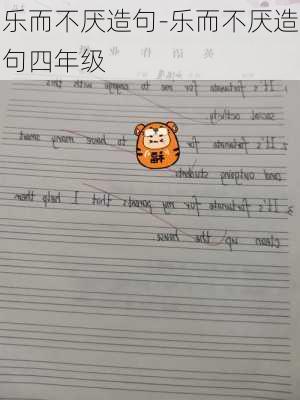 乐而不厌造句-乐而不厌造
句四年级
1. It's fortunate for me to engage with this
social activity.
2. It's fortunate for to have many smart
and outgoing students.
福
3. It's fortunate for my parents that I help them
clean up the house.